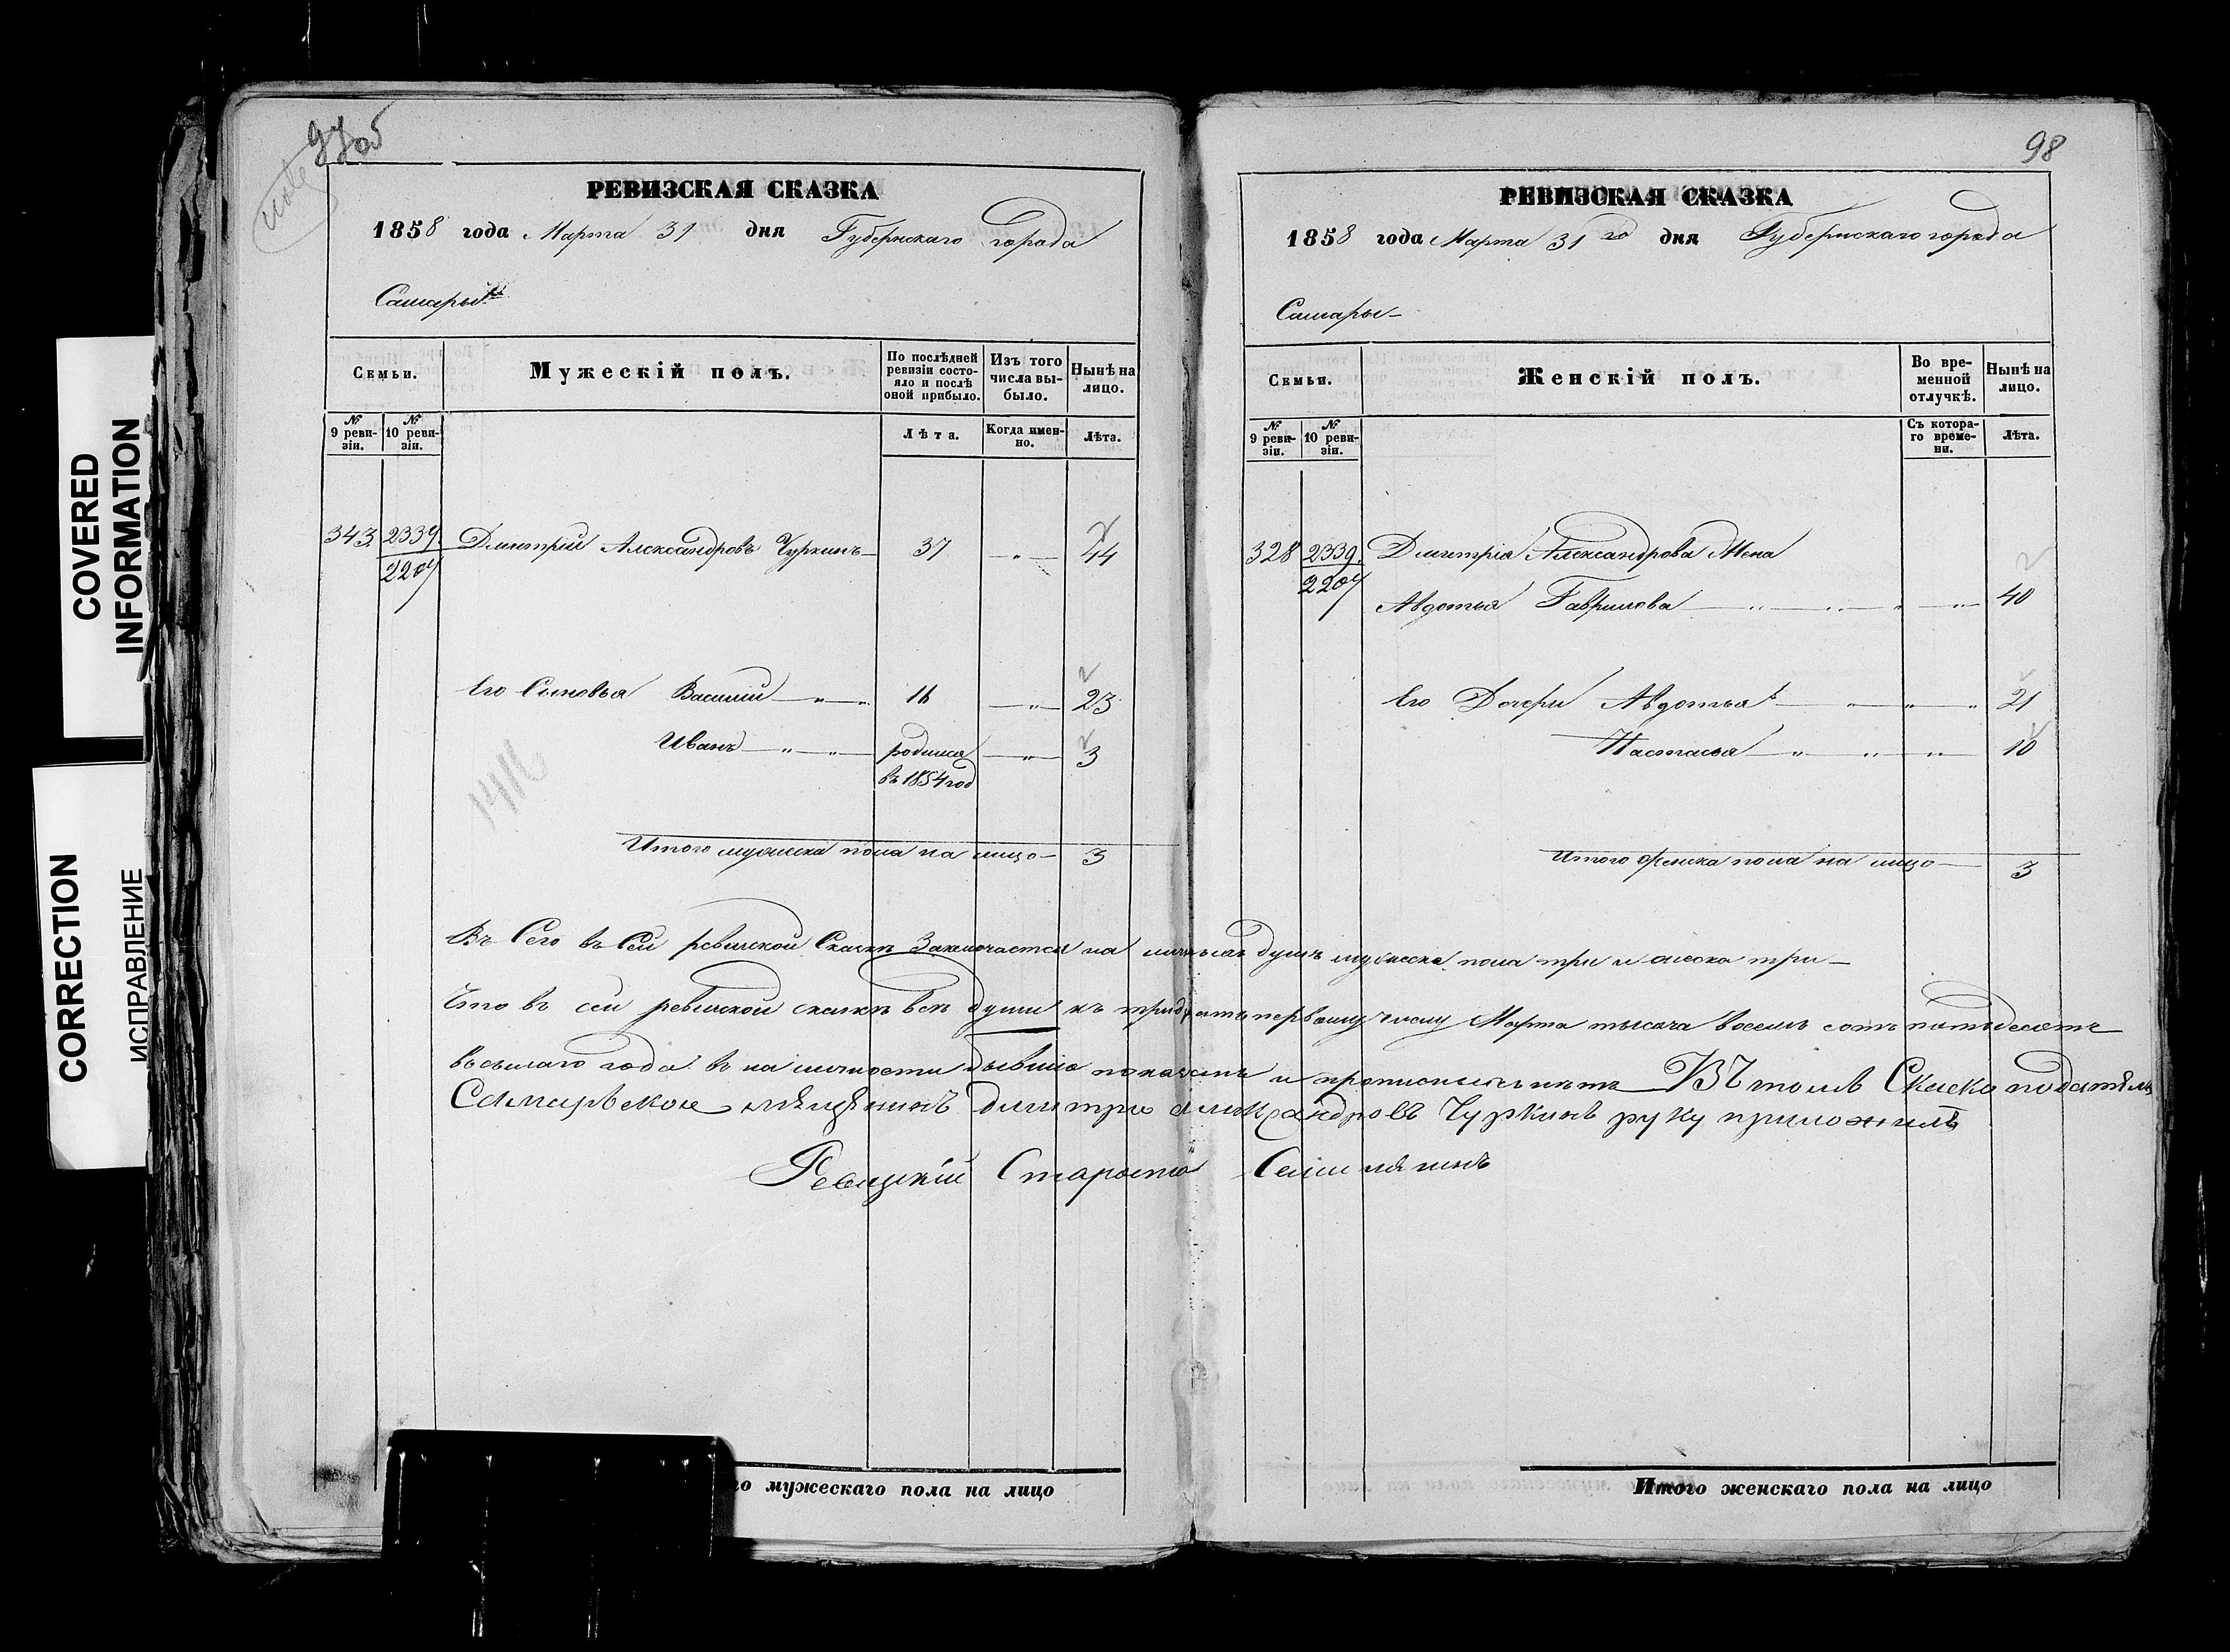 97об
note
РЕВИЗСКАЯ СКАЗКА
1858 года Марта 31 дня Губернскаго города
Самары
Семьи.
Мужескій полъ.
По послѣдней ревизіи состояло и послѣ оной прибыло.
Изъ того числа выбыло.
Нынѣ на лицо.
№ 9 ревизіи.
№ 10 ревизіи.
Лѣта.
Когда именно.
Лѣта.
343 2339 Дмитрій Александровъ Чуркинъ 37 — „ — 44
2207
Его Сыновья Василій — „ — „ 16 — „ — 23
Иванъ — „ — „ — родился — „ — 3
въ 1854 год
Итого мужеска пола на лицо — 3
98
РЕВИЗСКАЯ СКАЗКА
1858 года Марта 31го дня Губернскаго города
Самары
Семьи.
Женскій полъ.
Во временной отлучкѣ.
Нынѣ на лицо.
№ 9 ревизіи.
№ 10 ревизіи.
Съ котораго времени.
Лѣта.
328 2339 Дмитрія Александрова Жена
2207
Авдотья Гаврилова — „ — „ — „ — „ — 40
Его Дочери Авдотья — „ — „ — „ 21
Настасья — „ — „ — „ — 10
Итого женска пола на лицо — 3
Въ Сего въ Сей ревизской Сказкѣ Заключается на душъ мужеска пола три и женска три —
Что въ сей ревизской сказкѣ всѣ души къ тридцать первому числу Марта тысяча восемь сотъ пятьдесятъ
восьмаго года въ наличности бывшіе показаны и прописныхъ нѣтъ — Въ томъ Скаско податѣль
Самарской мѣщянинъ Дмитри Александровъ Чуркинъ руку приложилъ
Староста
COVERED
INFORMATION
CORRECTION
ИСПРАВЛЕНИЕ
го мужескаго пола на лицо
Итого женскаго пола на лицо